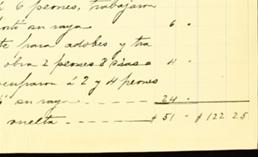 6 peones, trabajaron
su raya 6 "
te para adobes y tra
obra 2 peones 8 dias a 4 "
ocuparon á 2 y 4 peones
su raya 24 "
vuelta $ 51 " $ 122 25